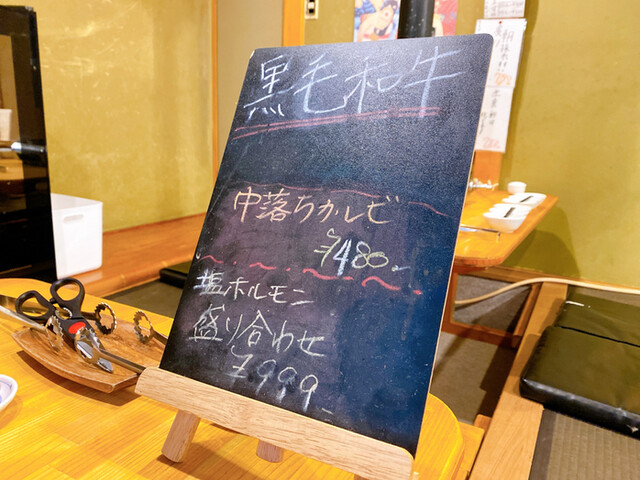 黒毛和牛
中落ちカルビ
¥480-
塩ホルモン
盛り合わせ
¥999-